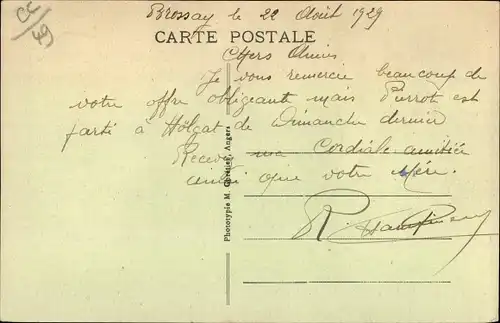 CC
49
Brossay le 22 Août 1929
CARTE POSTALE
Chers Amis
Je vous remercie beaucoup de
votre offre obligeante mais Pierrot est
parti à de Dimanche dernier
Recevez ma Cordiale amitié
ainsi que votre Mère.
R
Phototypie M. Chrétien, Angers